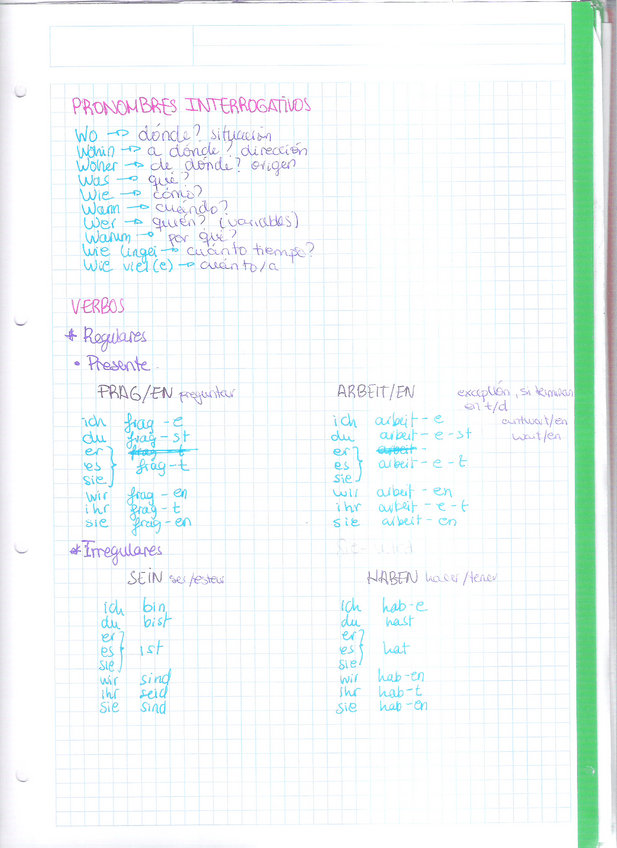 PRONOMBRES INTERROGATIVOS
Wo → dónde? situación
Wohin → a dónde? dirección
Woher → de dónde? origen
Was → qué?
Wie → cómo?
Wann → cuándo?
Wer → quién? (variables)
Warum → por qué?
Wie → cuánto tiempo?
Wie viel(e) → cuánto/a
VERBOS
* Regulares
• Presente.
FRAG/EN preguntar
ich frag-e
du frag-st
er
es frag-t
sie
wir frag-en
ihr frag-t
sie frag-en
ARBEIT/EN
excepción, si terminan
en t/d
antwort/en
wart/en
ich arbeit-e
du arbeit-e-st
er
es arbeit-e-t
sie
wir arbeit-en
ihr arbeit-e-t
sie arbeit-en
* Irregulares
SEIN ser/estar
ich bin
du bist
er
es ist
sie
wir sind
ihr seid
sie sind
HABEN hacer/tener
ich hab-e
du hast
er
es hat
sie
wir hab-en
ihr hab-t
sie hab-en